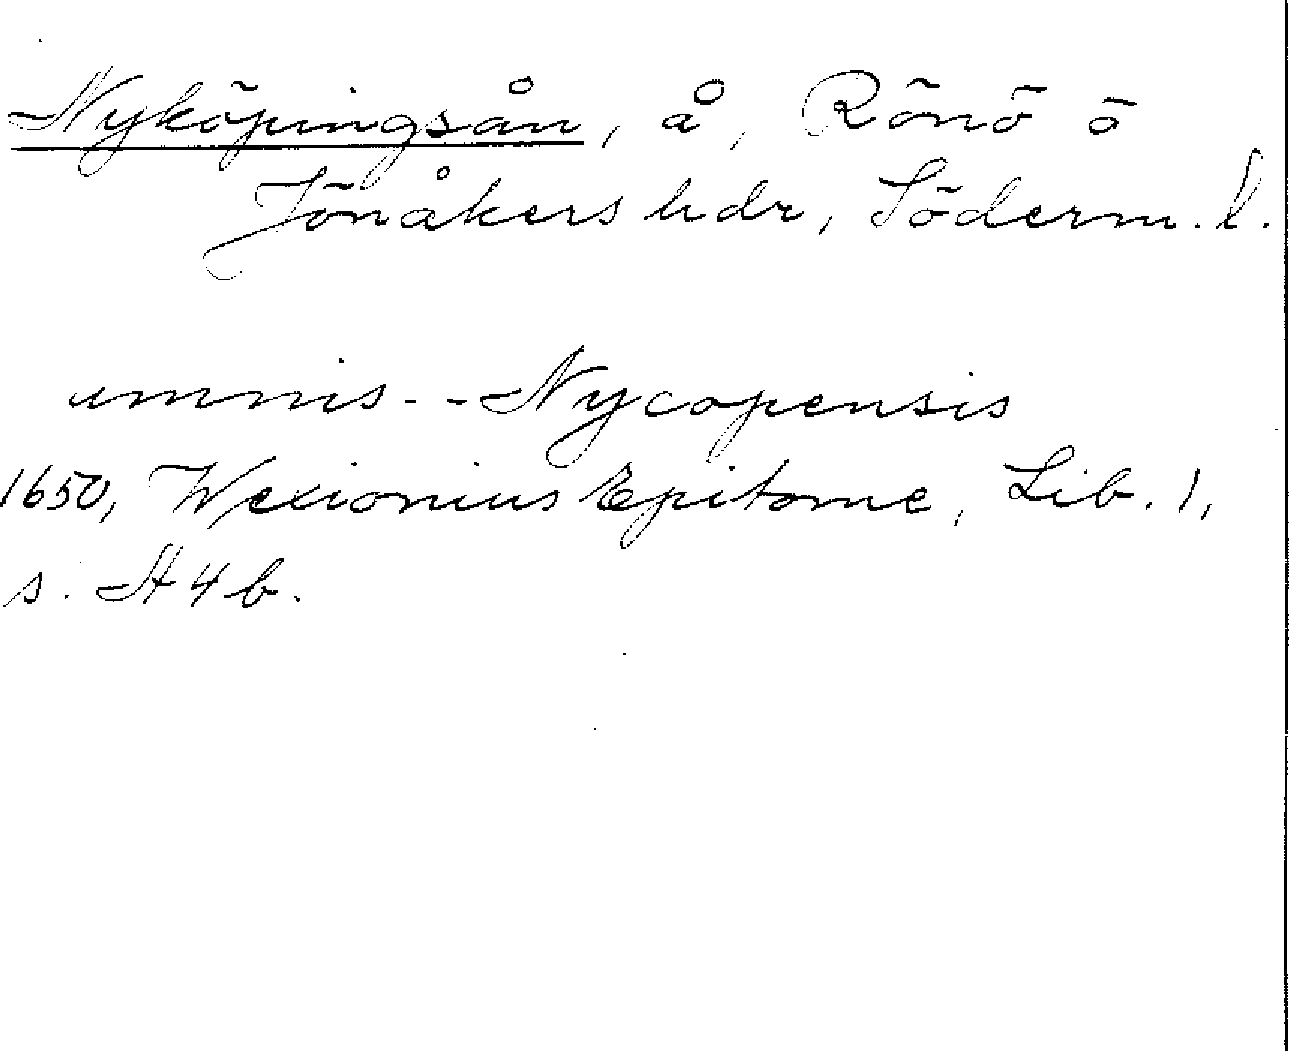 Nyköpingsån, å, Rönö o
Jönåkers hdr, Söderm. l.
amnis - - Nycopensis
1650, Wexionius Epitome, Lib. 1,
s. H 4 b.